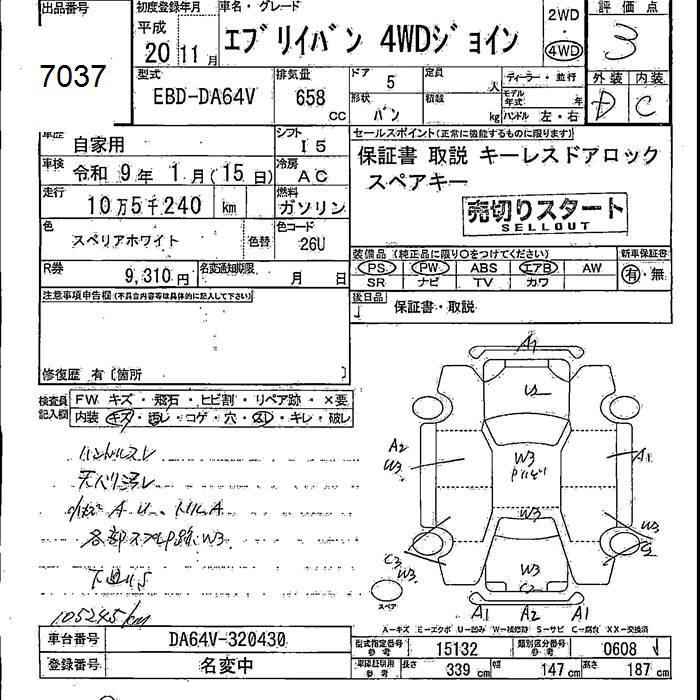 出品番号
7037
初度登録年月
平成
20 11 月
車名・グレード
エブリイバン 4WDジョイン
2WD
4WD
評価点
3
型式
EBD-DA64V
排気量
658
cc
ドア
5
形状
バン
定員
人
積載
kg
ディーラー・並行
モデル年式
年
ハンドル 左・右
外装 内装
D C
車歴
自家用
シフト
I5
車検
令和 9 年 1 月 ( 15 日)
冷房
AC
走行
10万5千240 km
燃料
ガソリン
色
スペリアホワイト
色替
色コード
26U
R券
9,310 円
名変通知期限
月 日
セールスポイント(正常に機能するものに限ります)
保証書 取説 キーレスドアロック
スペアキー
売切りスタート
SELLOUT
装備品 (純正品に限り○をつけてください)
新車保証書
PS PW ABS エアB AW
SR ナビ TV カワ
有・無
後日品
保証書・取説
注意事項申告欄(不具合内容等は具体的に記入して下さい)
修復歴 有〔箇所 〕
検査員
記入欄
FW キズ・飛石・ヒビ割・リペア跡・×要
内装 キズ・汚レ・コゲ・穴・スレ・キレ・破レ
ハンドルスレ
各部 W3
下廻りS
105245km
A1
A2
W3
W3
W3
W3
C2
C3
W3
W3
スペア
A1 A2 A1
A-キズ E-エクボ U-凹み W-補修跡 S-サビ C-腐食 XX-交換済
車台番号
DA64V-320430
登録番号
名変中
型式指定番号
参考
15132
類別区分番号
参考
0608
車庫証明用
参考
長さ 339 cm 幅 147 cm 高さ 187 cm